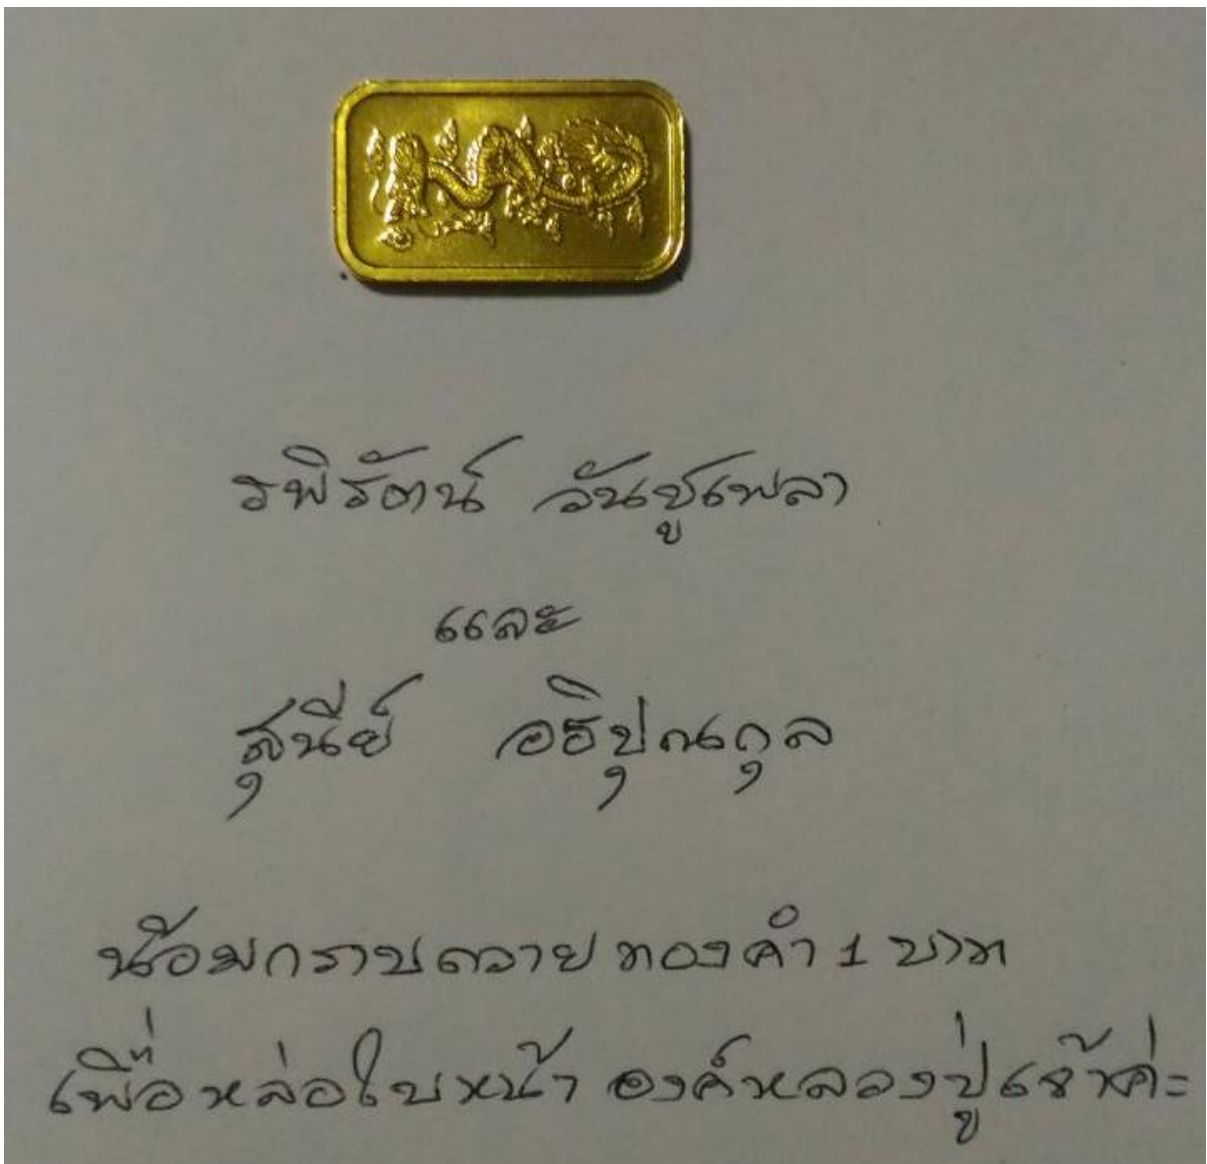 รพิรัตน์ วันชูเพลา
และ
สุนีย์ อธิปุณกุล
น้อมกราบถวายทองคำ 1 บาท
เพื่อหล่อใบหน้า องค์หลวงปู่เจ้าค่ะ